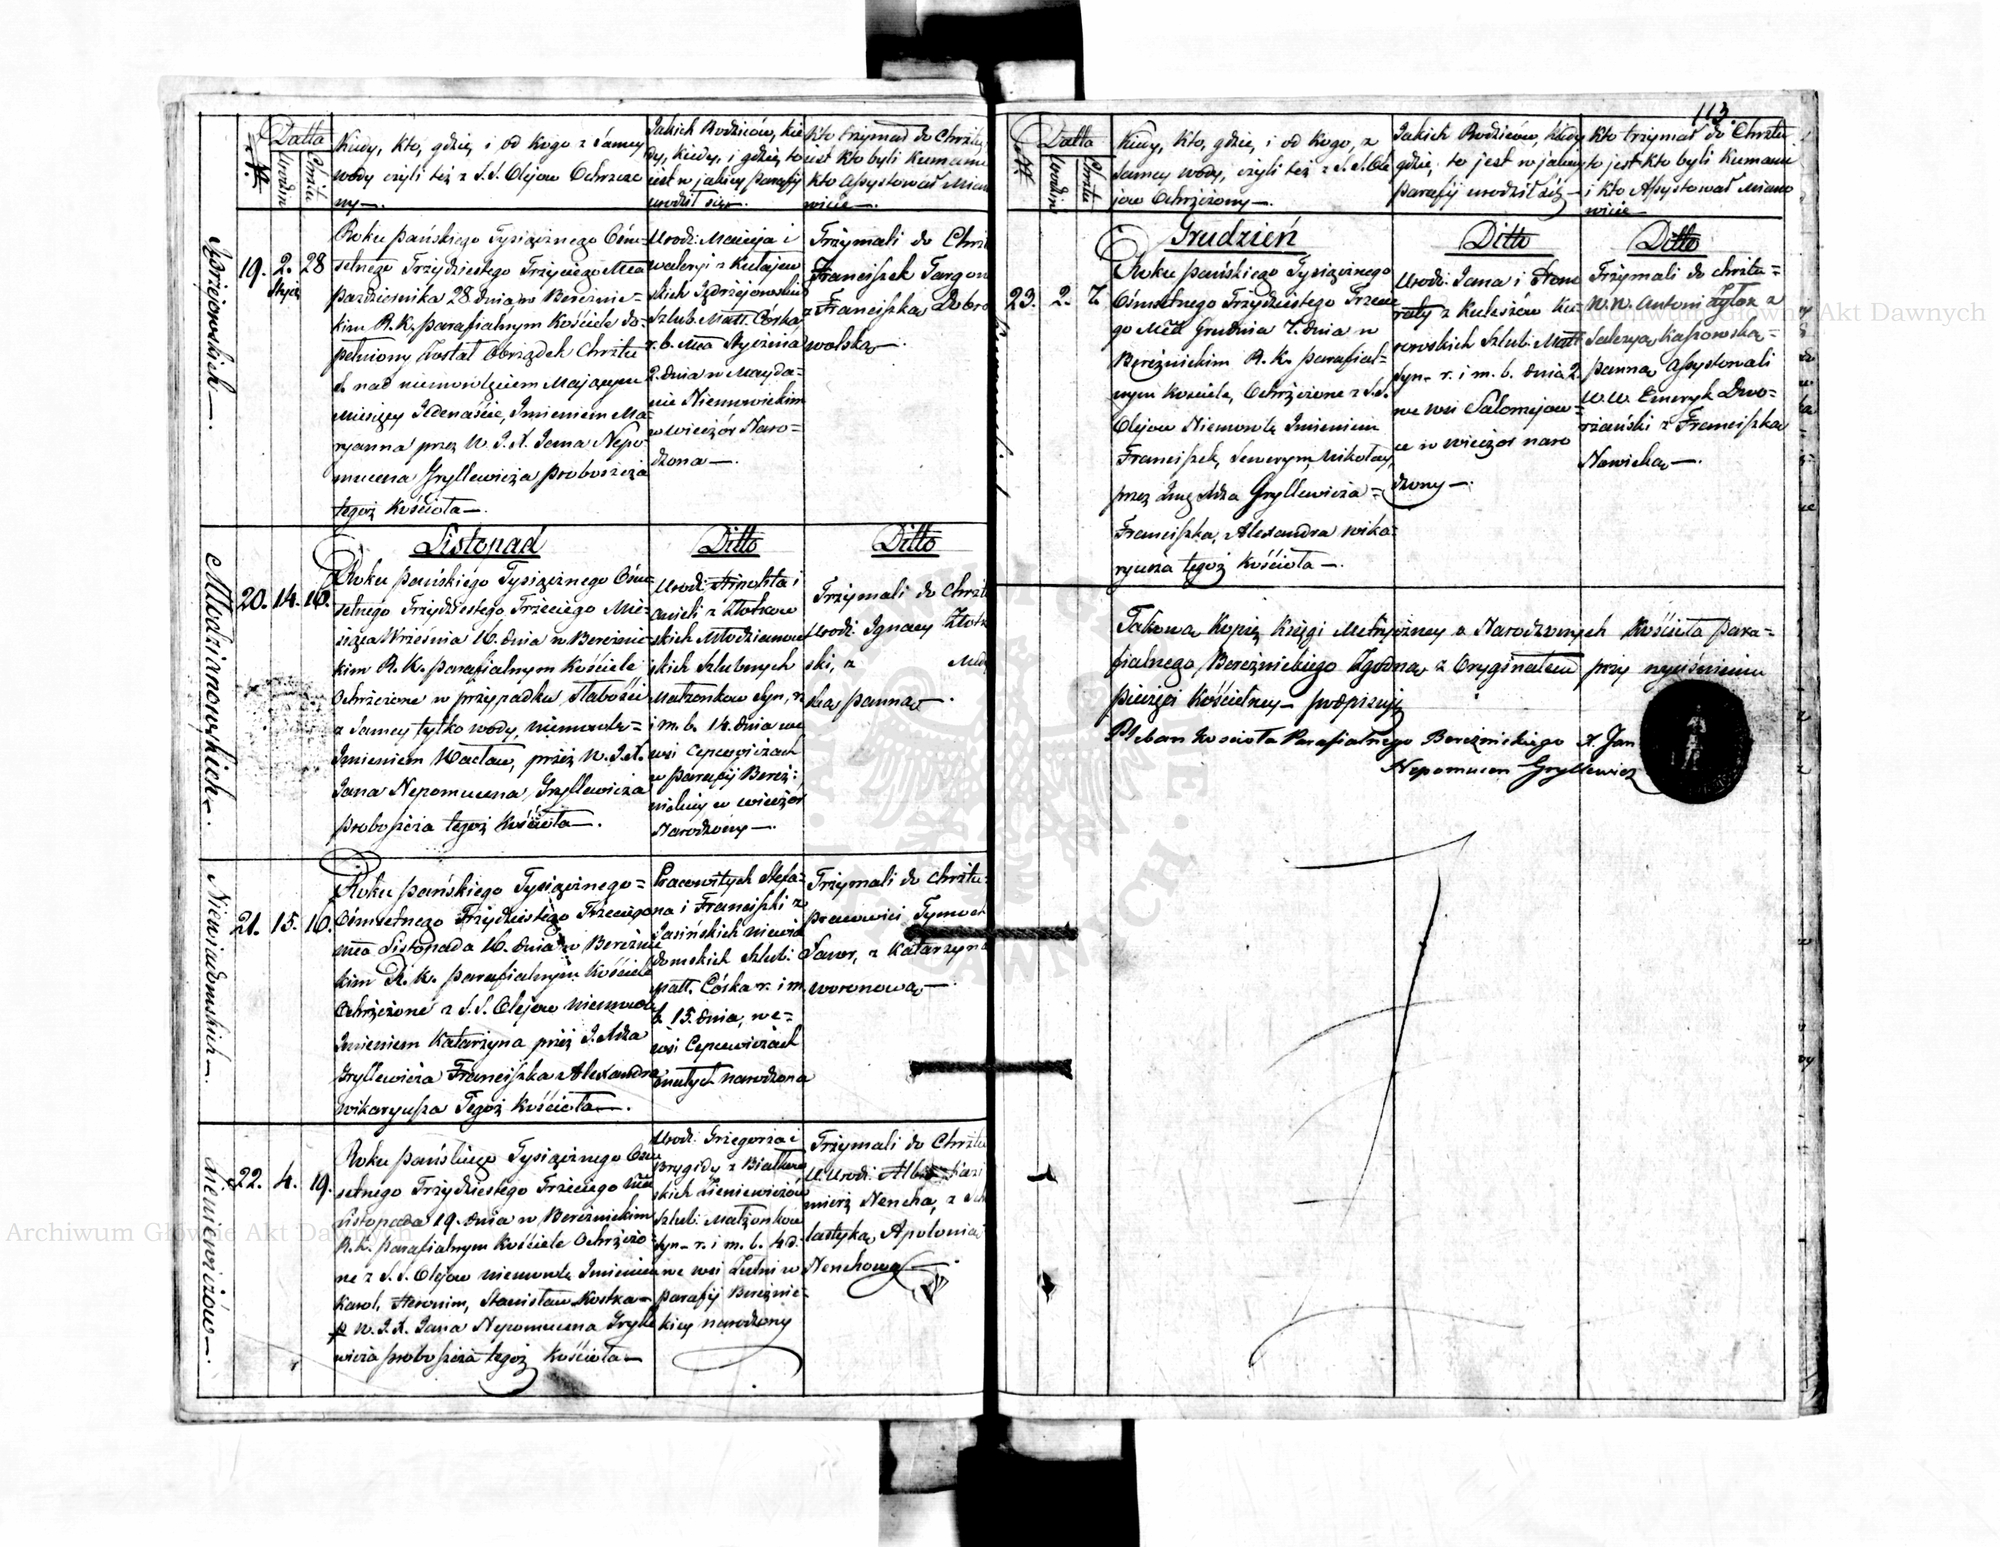 113.
N.
Datta
Urodzin
Chrztu
Kiedy, kto, gdzie, i od kogo z samey
wody czyli też z S.S. Olejow Ochrzczo
ny—.
Jakich Rodziców, kie
dy, kiedy, i gdzie, to
iest w jakiey parafij
urodził się—.
Kto trzymał do Chrztu,
iest kto byli kumami
kto assystował Miano
wicie—.
19. 2. 28
Stycz
Roku pańskiego Tysiącznego Óśm-
setnego Trzydziestego Trzeciego Mca
Pazdziernika 28 dnia w Bereznic-
kim R. K. parafialnym Kosciele do-
pełniony został Obrządek Chrztu
S. nad niemowlęciem Mającym
Miesięcy Jedenaście, Imieniem Ma-
ryanna przez W. J. X. Jana Nepo-
mucena Gryllewicza Proboszcza
tegoż Kościoła—.
Urodz: Macieja i
Waleryi z
Szlub. Matt. Córka
r. b. Mca Stycznia
2. dnia w Mayda-
nie Niemowickim
w wieczór Naro-
dzona—.
Trzymali do Chrz
Franciszek Targon
z Franciszką Dobro
wolską—.
Listopad
Ditto
Ditto
Młodzianowskich—.
20. 14. 16.
Roku Pańskiego Tysiącznego Óśm-
setnego Trzydziestego Trzeciego Mie-
siąca Września 16. dnia w Berezníc-
kim R. K. parafialnym Kościele
Ochrzczone w przypadku słabości
z samey tylko wody, niemowle=
Imieniem Wacław, przez W. J. X.
Jana Nepomucena Gryllewicza
Proboszcza tegoż Kościoła—.
Urodz: i
Anieli z Złotkow
skich Młodzianow
skich Szlubnych
Małżonkow Syn, r.
i m. b. 14. dnia we
wsi Cepcewiczach
w parafij Berez:
nickiey w wieczór
Narodzony—.
Trzymali do Chrzt
Urodz: Ignacy Złotk
ski, z
ka panna—.
Niewiadomskich—.
21. 15. 16.
Roku pańskiego Tysiącznego=
Ósmsetnego Trzydziestego Trzeciego
mca Listopada 16. dnia w Bereznic
kim R. K. parafialnym Kościele
Ochrzczone z S.S. Olejow niemowle
Imieniem Katarzyna przez J. Xdza
Gryllewicza Franciszka Alexandra
wikaryusza Tegoż Kościoła—.
Pracowitych Stefa-
na i Franciszki z
Jasińskich niewia
domskich Szlub:
Matt. Córka r. i m.
b. 15. dnia, we=
wsi Cepcewiczach
małych narodzona
Trzymali do chrztu:
pracowici Tymoch
Sawor, z Katarzyną
woronową—.
Zieniewiczów—.
22. 4. 19.
Roku Pańskiego Tysiącznego Óśm
setnego Trzydziestego Trzeciego mca
Listopada 19. dnia w Bereznickim
R. K. parafialnym Kościele Ochrzczo
ne z S.S. Olejow niemowle Imieniem
Karol, Heronim, Stanisław Kostka—
p W. J. X. Jana Nepomucena Grylle
wicza proboszcza tegoż Kościoła—
Urodz: Grzegorza i
Brygidy z Białkow
skich Zieniewiczów
Szlub: Małżonkow
Syn— r. i m. b. 4 d.
we wsi w
parafij Bereznic-
kiey narodzony
Trzymali do Chrztu
U. Urodz: Kazi
mierz Nencha, z
lastyką Apolonią
Nenchową—.
N.
Datta
Urodzin
Chrztu
Kiedy, Kto, gdzie, i od Kogo, z
samey wody, czyli też z S.S. Ole
jow Ochrzczony—.
Jakich Rodziców, kiedy
gdzie, to jest w jakiey
parafij urodził się—
Kto trzymał do Chrztu
to jest kto byli Kumami
i Kto Assystował miano
wicie—
Grudzień
Ditto
Ditto
23. 2. 7.
Roku pańskiego Tysiącznego
Ósmsetnego Trzydziestego Trzecie
go Mca Grudnia 7. dnia w
Bereznickim R. K. parafial-
nym Kościele, Ochrzczone z S.S.
Olejow Niemowle Imieniem
Franciszek, Seweryn, Mikołay,
przez Xdza Gryllewicza=
Franciszka, Alexandra wika-
ryusza tegoż Kościoła—.
Urodz: Jana i
z Kuleszów
Szlub: Matt
Syn— r. i m. b. dnia 2.
we wsi Salomejow=
ce w wieczor naro
dzony—.
Trzymali do chrztu=
W.W. Antoni z
Salezyą
panną Assystowali
W.W. Emeryk Dwo-
rzański z Franciszką
Nowicką—.
Takową Kopię Księgi Metryczney o Narodzonych Kościoła para=
fialnego Bereznickiego Zgodną z Oryginałem przy wyciśnieniu
pieczęci Kościelney podpisuję
Pleban Kosciola Parafialnego Bereznickiego X. Jan
Nepomucen Gryllewicz
Archiwum Główne Akt Dawnych
Archiwum Główne Akt Dawnych